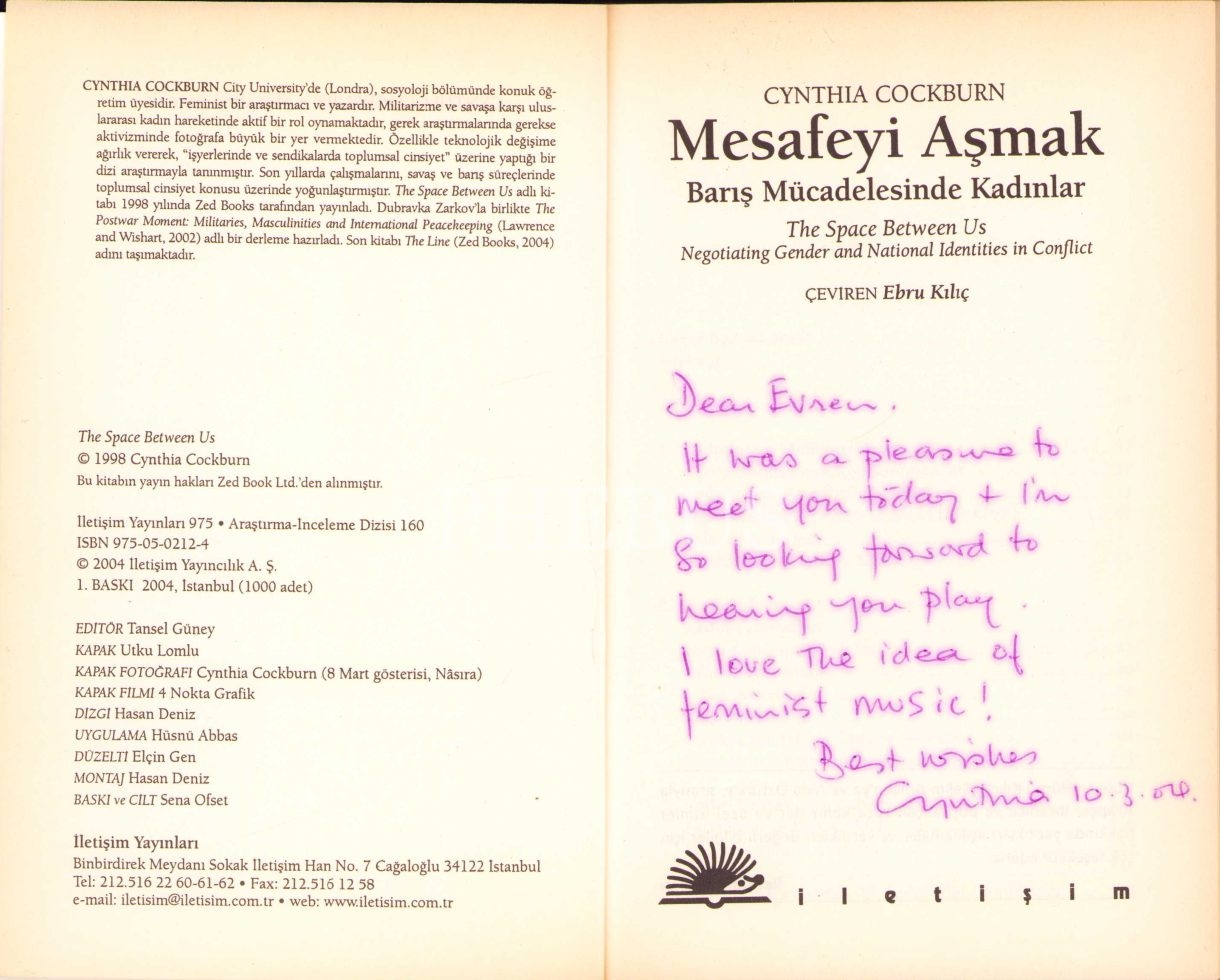 CYNTHIA COCKBURN City University'de (Londra), sosyoloji bölümünde konuk öğ-
retim üyesidir. Feminist bir araştırmacı ve yazardır. Militarizme ve savaşa karşı ulus-
lararası kadın hareketinde aktif bir rol oynamaktadır, gerek araştırmalarında gerekse
aktivizminde fotoğrafa büyük bir yer vermektedir. Özellikle teknolojik değişime
ağırlık vererek, "işyerlerinde ve sendikalarda toplumsal cinsiyet" üzerine yaptığı bir
dizi araştırmayla tanınmıştır. Son yıllarda çalışmalarını, savaş ve barış süreçlerinde
toplumsal cinsiyet konusu üzerinde yoğunlaştırmıştır. The Space Between Us adlı ki-
tabı 1998 yılında Zed Books tarafından yayınladı. Dubravka Zarkov'la birlikte The
Postwar Moment: Militaries, Masculinities and International Peacekeeping (Lawrence
and Wishart, 2002) adlı bir derleme hazırladı. Son kitabı The Line (Zed Books, 2004)
adını taşımaktadır.
The Space Between Us
© 1998 Cynthia Cockburn
Bu kitabın yayın hakları Zed Book Ltd.'den alınmıştır.
İletişim Yayınları 975 • Araştırma-İnceleme Dizisi 160
ISBN 975-05-0212-4
© 2004 İletişim Yayıncılık A. Ş.
1. BASKI 2004, Istanbul (1000 adet)
EDITÖR Tansel Güney
KAPAK Utku Lomlu
KAPAK FOTOĞRAFI Cynthia Cockburn (8 Mart gösterisi, Nâsıra)
KAPAK FILMI 4 Nokta Grafik
DIZGI Hasan Deniz
UYGULAMA Hüsnü Abbas
DÜZELTI Elçin Gen
MONTAJ Hasan Deniz
BASKI ve CILT Sena Ofset
İletişim Yayınları
Binbirdirek Meydanı Sokak Iletişim Han No. 7 Cağaloğlu 34122 Istanbul
Tel: 212.516 22 60-61-62 • Fax: 212.516 12 58
e-mail: iletisim@iletisim.com.tr • web: www.iletisim.com.tr
CYNTHIA COCKBURN
Mesafeyi Aşmak
Barış Mücadelesinde Kadınlar
The Space Between Us
Negotiating Gender and National Identities in Conflict
ÇEVİREN Ebru Kılıç
Dear Evren.
It was a pleasure to
meet you today + I'm
so looking forward to
hearing you play.
I love the idea of
feminist music!
Best wishes
Cynthia 10.3.04.
iletişim